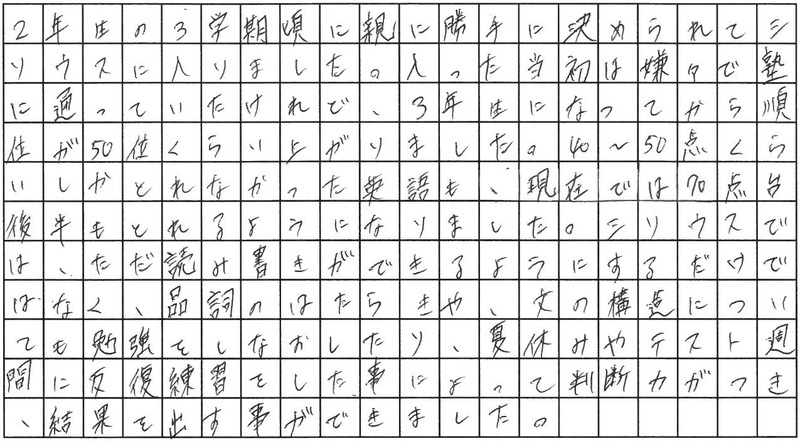 2年生の3学期頃に親に勝手に決められてシ
リウスに入りました。入った当初は嫌々で塾
に通っていたけれど、3年生になってから順
位が50位くらい上がりました。40〜50点くら
いしかとれなかった英語も、現在では70点台
後半もとれるようになりました。シリウスで
は、ただ読み書きができるようにするだけで
はなく、品詞のはたらきや、文の構造につい
ても勉強をしなおしたり、夏休みやテスト週
間に反復練習をした事によって判断力がつき
、結果を出す事ができました。